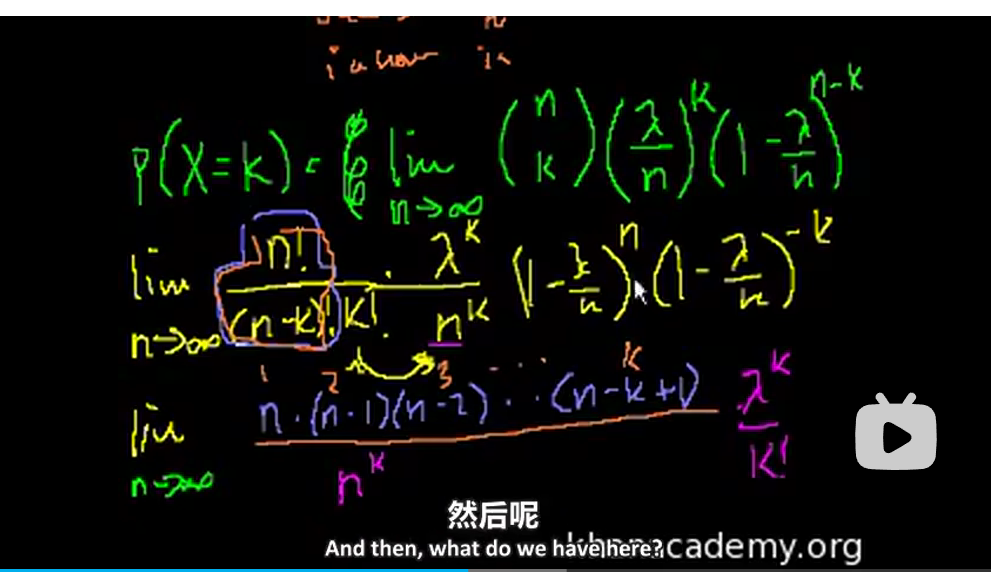 is
P(X=k) = lim n→∞ (n k) (λ/n)^k (1 - λ/n)^n-k
lim n→∞ n!/(n-k)!k! · λ^k/n^k (1 - λ/n)^n (1 - λ/n)^-k
1 2 3 ... k
lim n→∞ n·(n-1)(n-2)...(n-k+1)/n^k λ^k/k!
然后呢
And then, what do we have here?
khanacademy.org